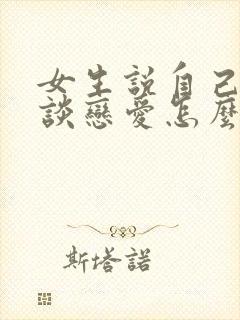 女生說自己
談戀愛怎麼
斯塔諾